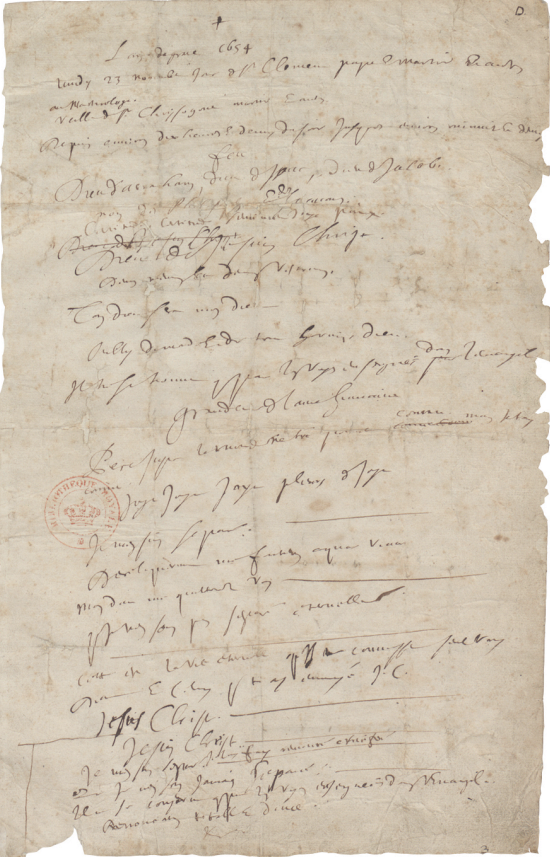 D
L'an de grace 1654
Lundy 23 novembre jour de St Clement pape et martir et autres
au Martirologe.
veille de St Chrysogone martir et autres
Depuis environ dix heures et demy du soir jusques environ minuit et demy
feu
Dieu d'Abraham, dieu d'Isaac, dieu de Jacob.
non des philosophes et des sçavans.
certitude certitude sentiment joye paix
Dieu de Jesus Christ
Deum meum et deum vestrum.
Ton dieu sera mon dieu
oubly du monde et de tout hormis dieu
Il ne se trouve que par les voyes enseignées dans l'evangile
grandeur de l'ame humaine
Pere juste le monde ne t'a point connu mais je t'ay
connu
joye joye joye pleurs de joye
Je m'en suis separé
Dereliquerunt me fontem aquae vivae
mon dieu me quitterez vous
que je n'en sois pas separé eternellement
cette est la vie eternelle qu'ils te connoissent seul vray
Dieu et celuy que tu as envoyé J.C.
Jesus Christ
Jesus Christ
je m'en suis separé je l'ay fui renoncé crucifié
que je n'en sois jamais separé
Il ne se conserve que par les voyes enseignées dans l'evangile.
Renonciation totale et douce